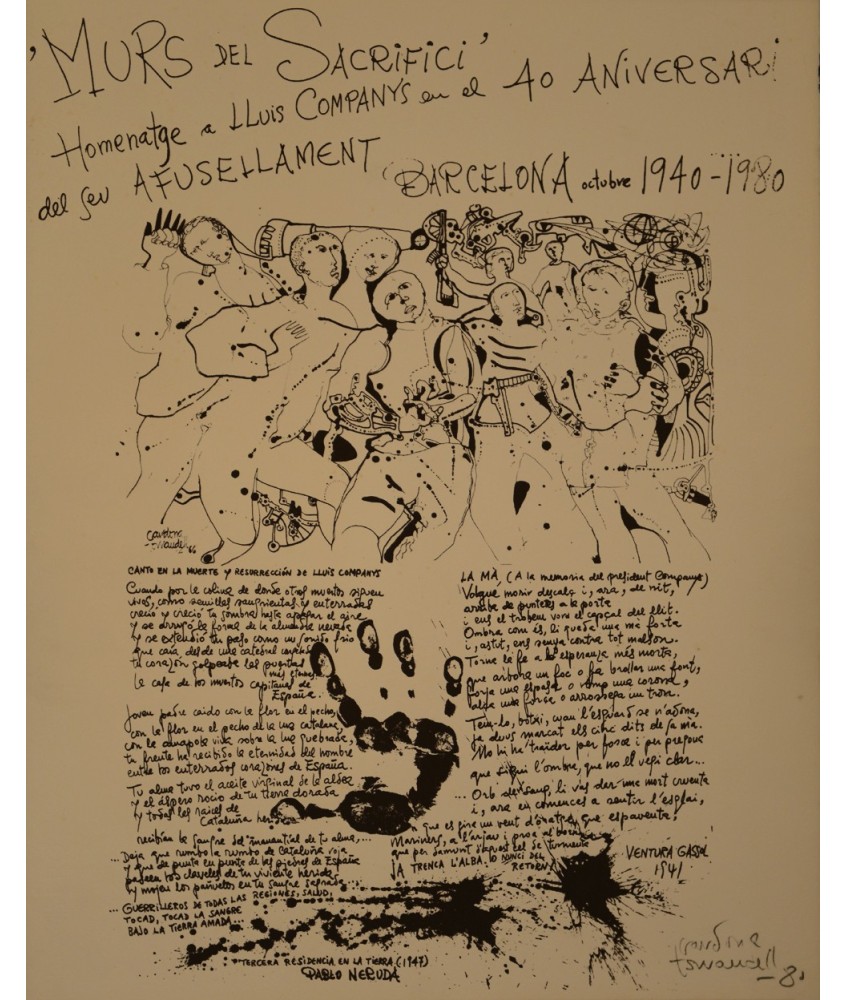 'MURS DEL SACRIFICI'
Homenatge a LLuis COMPANYS en el 40 ANIVERSARI
del seu AFUSELLAMENT
BARCELONA octubre 1940-1980
CANTO EN LA MUERTE Y RESURRECCIÓN DE LLUIS COMPANYS
Cuando por la colina de donde otros muertos siguen
vivos, como semillas sangrientas y enterradas
creció y creció tu sombra hasta apagar el aire
y se arrugó la forma de la almendra nevada
y se extendió tu paso como un sonido frío
que caía desde una catedral
tu corazón golpeaba las puertas
más eternas
la casa de los muertos capitanes de
España.
Joven padre caído con la flor en el pecho,
con la flor en el pecho de la luz catalana,
con la amapola viva sobre la luz quebrada,
tu frente ha recibido la eternidad del hombre
entre los enterrados corazones de España.
Tu alma tuvo el aceite virginal de la aldea
y el áspero rocío de tu tierra dorada
y todas las raíces de
Cataluña
recibían la sangre del manantial de tu alma,...
... Deja que
y que
los claveles de tu viviente herida
y mojen los pañuelos en tu sangre sagrada...
... GUERRILLEROS DE TODAS LAS REGIONES, SALUD,
TOCAD, TOCAD LA SANGRE
BAJO LA TIERRA AMADA...
TERCERA RESIDENCIA EN LA TIERRA (1947)
PABLO NERUDA
LA MÀ, (A la memoria del president Companys)
Volgué morir descalç i, ara, de nit,
arriba de puntetes a la porta
i ens el trobem vora el capçal del llit.
Ombra com és, li queda una mà forta
i, astut, ens senya contra tot malson.
Torna la fe a la esperança més morta,
que arbora un foc o fa brollar una font,
forja una espasa o romp una corona,
alça una força o arrossega un tron.
Tem-lo, botxí, quan l'esguard se n'adona,
ja deus marcat els cinc dits de sa mà.
No hi ha traïdor per fosc i per pregon
que sigui l'ombra, que no el vegi clar...
... Orb de sang, li vas dar una mort cruenta
i, ara en comences a sentir l'esglai,
que es gira un vent d'Orat que espaventa!
Mariners, a l'arjau i proa al
que per damunt d'aquest cel de turmenta
JA TRENCA L'ALBA
RETORN!
VENTURA GASSOL
1941